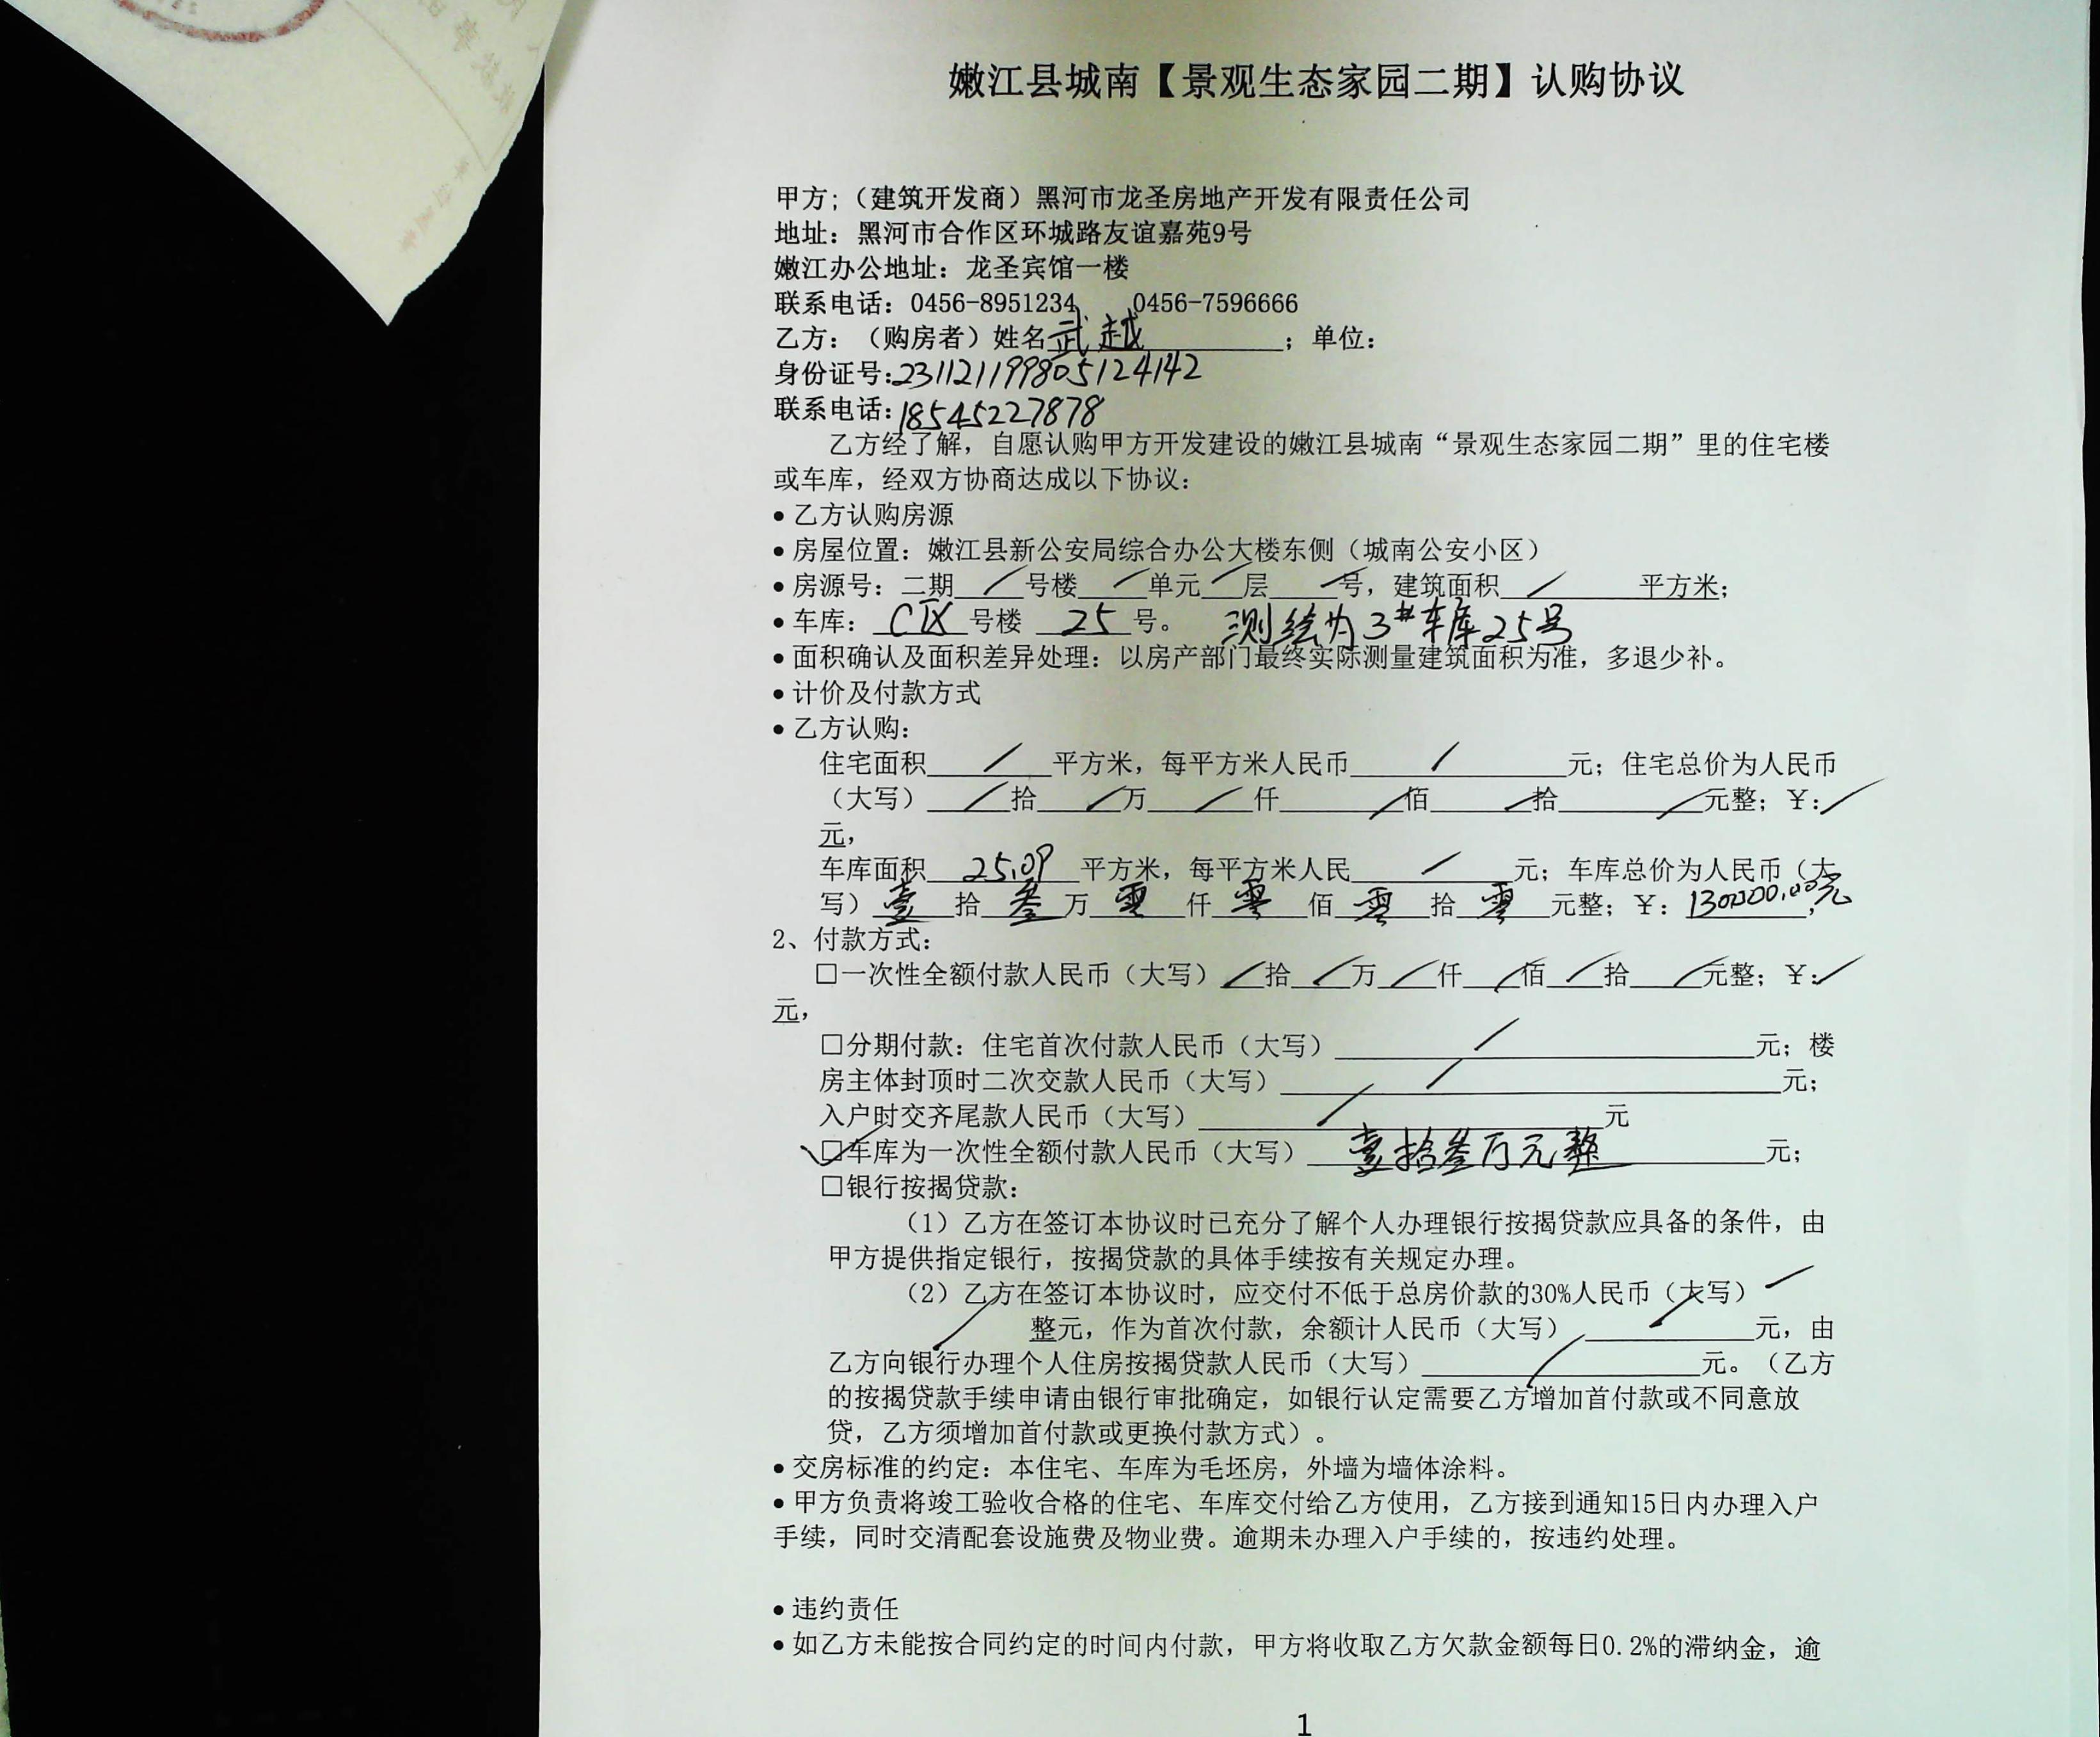 嫩江县城南【景观生态家园二期】认购协议
甲方;（建筑开发商）黑河市龙圣房地产开发有限责任公司
地址：黑河市合作区环城路友谊嘉苑9号
嫩江办公地址：龙圣宾馆一楼
联系电话：0456-8951234 0456-7596666
乙方：（购房者）姓名武越；单位：
身份证号:231121199805124142
联系电话:18545227878
乙方经了解，自愿认购甲方开发建设的嫩江县城南“景观生态家园二期”里的住宅楼
或车库，经双方协商达成以下协议：
• 乙方认购房源
• 房屋位置：嫩江县新公安局综合办公大楼东侧（城南公安小区）
• 房源号：二期 / 号楼 / 单元 / 层 / 号，建筑面积 / 平方米；
• 车库： C区 号楼 25 号。 测绘为3#车库25号
• 面积确认及面积差异处理：以房产部门最终实际测量建筑面积为准，多退少补。
• 计价及付款方式
• 乙方认购：
住宅面积 / 平方米，每平方米人民币 / 元；住宅总价为人民币
（大写） / 拾 / 万 / 仟 / 佰 / 拾 / 元整；￥： /
元，
车库面积 25.09 平方米，每平方米人民 / 元；车库总价为人民币（大
写） 壹 拾 叁 万 零 仟 零 佰 零 拾 零 元整；￥： 130000.00元，
2、付款方式：
□一次性全额付款人民币（大写） / 拾 / 万 / 仟 / 佰 / 拾 / 元整；￥： /
元，
□分期付款：住宅首次付款人民币（大写） / 元；楼
房主体封顶时二次交款人民币（大写） / 元；
入户时交齐尾款人民币（大写） / 元
☑车库为一次性全额付款人民币（大写） 壹拾叁万元整 元；
□银行按揭贷款：
（1）乙方在签订本协议时已充分了解个人办理银行按揭贷款应具备的条件，由
甲方提供指定银行，按揭贷款的具体手续按有关规定办理。
（2）乙方在签订本协议时，应交付不低于总房价款的30%人民币（大写） /
整元，作为首次付款，余额计人民币（大写） / 元，由
乙方向银行办理个人住房按揭贷款人民币（大写） / 元。（乙方
的按揭贷款手续申请由银行审批确定，如银行认定需要乙方增加首付款或不同意放
贷，乙方须增加首付款或更换付款方式）。
• 交房标准的约定：本住宅、车库为毛坯房，外墙为墙体涂料。
• 甲方负责将竣工验收合格的住宅、车库交付给乙方使用，乙方接到通知15日内办理入户
手续，同时交清配套设施费及物业费。逾期未办理入户手续的，按违约处理。
• 违约责任
• 如乙方未能按合同约定的时间内付款，甲方将收取乙方欠款金额每日0.2%的滞纳金，逾
1